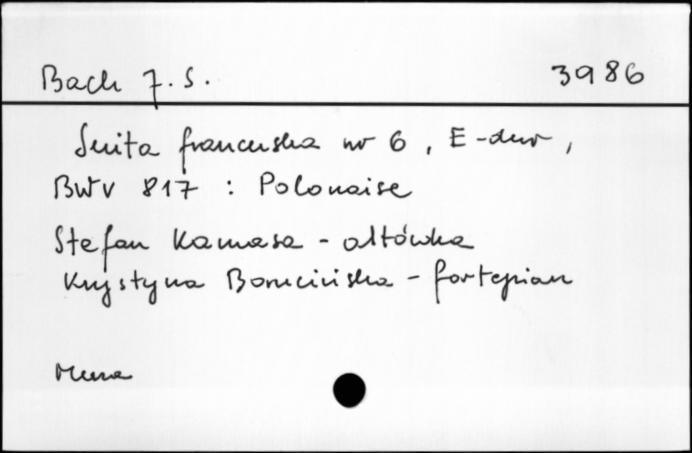 Bach J. S. 3986
Suita francuska nr 6, E-dur,
BWV 817 : Polonaise
Stefan Kamasa - altówka
Krystyna Borucińska - fortepian
Muza